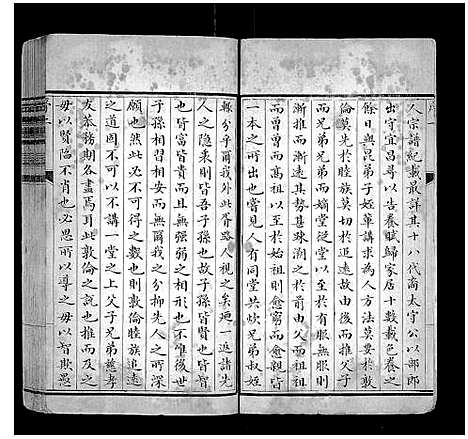 序一
人宗譜紀載最詳其十八代裔太守公以部郎
出守宜昌尋以告養賦歸家居十數載色養之
餘日與昆弟子姪輩講求為人方法莫要於敦
倫莫先於睦族莫切於追遠故由父而推父子
而兄弟兄弟而嫡堂從堂以至於有服無服則
漸推而漸遠其勢甚殊溯之於前由父而祖祖
而曾曾而高祖以至於始祖則愈窮而愈歸皆
一本之所出也嘗見人有同堂共炊兄弟叔姪
輒分乎爾我外此胥路人視之矣殛一追諸先
人之隱衷則皆吾子孫也故子孫皆賢也皆智
也皆富皆貴而且無強弱之相形也不于後世
為子孫相習相安而無爾我之分抑先人之深
願也然此必不可得之數也則敦倫睦族追遠
之道固不可以不講一堂之上父子兄弟慈孝
友恭務期各盡焉耳此敦倫之說也推而及之
毋以賢傲不肖也必思所以導之毋以智欺愚
序二